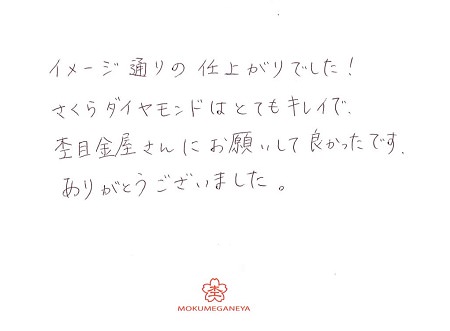 イメージ通りの仕上がりでした!
さくらダイヤモンドはとてもキレイで、
杢目金屋さんにお願いして良かったです、
ありがとうございました。
杢
MOKUMEGANEYA